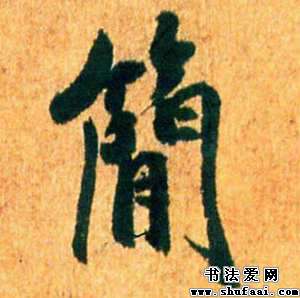 簡
书法爱网
www.shufaai.com